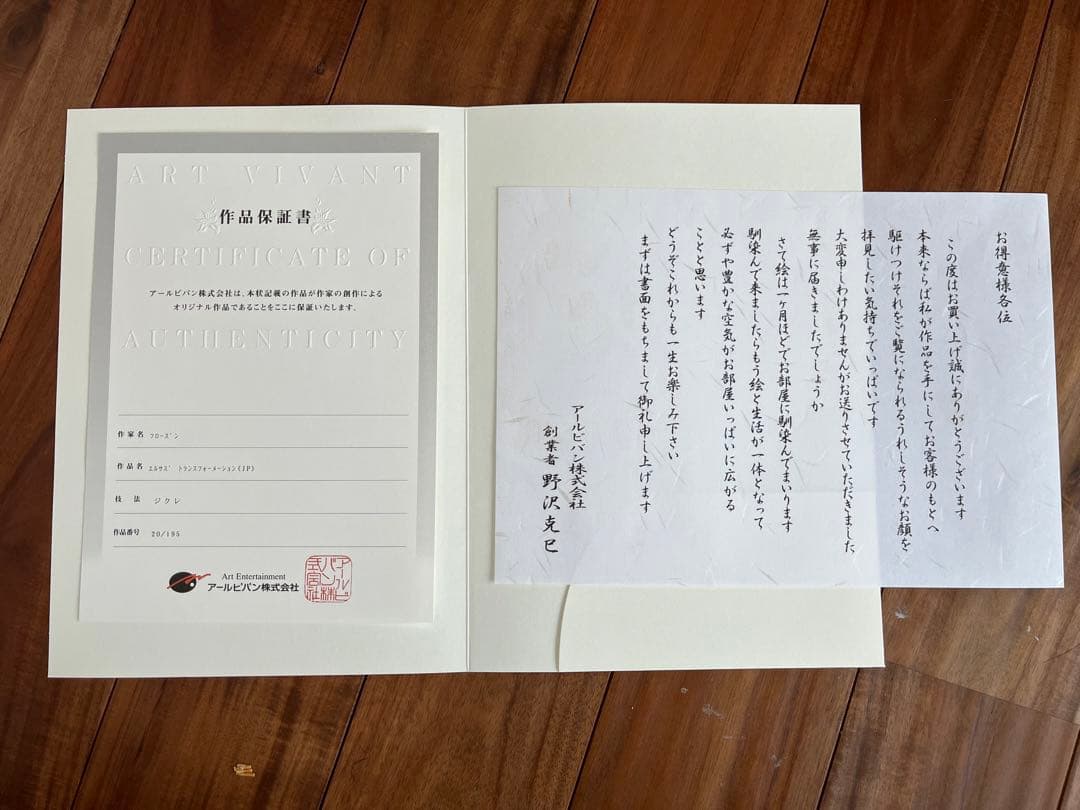 ART VIVANT
作品保証書
CERTIFICATE OF
アールビバン株式会社は、本状記載の作品が作家の創作による
オリジナル作品であることをここに保証いたします。
AUTHENTICITY
作家名 フローズン
作品名 エルサズ トランスフォーメーション(JP)
技法 ジクレ
作品番号 20/195
Art Entertainment
アールビバン株式会社
アールビ
バン株
式会社
お得意様各位
この度はお買い上げ誠にありがとうございます
本来ならば私が作品を手にしてお客様のもとへ
駆けつけそれをご覧になられるうれしそうなお顔を
拝見したい気持ちでいっぱいです
大変申しわけありませんがお送りさせていただきました
無事に届きましたでしょうか
さて絵は一ヶ月ほどでお部屋に馴染んでまいります
馴染んで来ましたらもう絵と生活が一体となって
必ずや豊かな空気がお部屋いっぱいに広がる
ことと思います
どうぞこれからも一生お楽しみ下さい
まずは書面をもちまして御礼申し上げます
アールビバン株式会社
創業者 野沢克巳